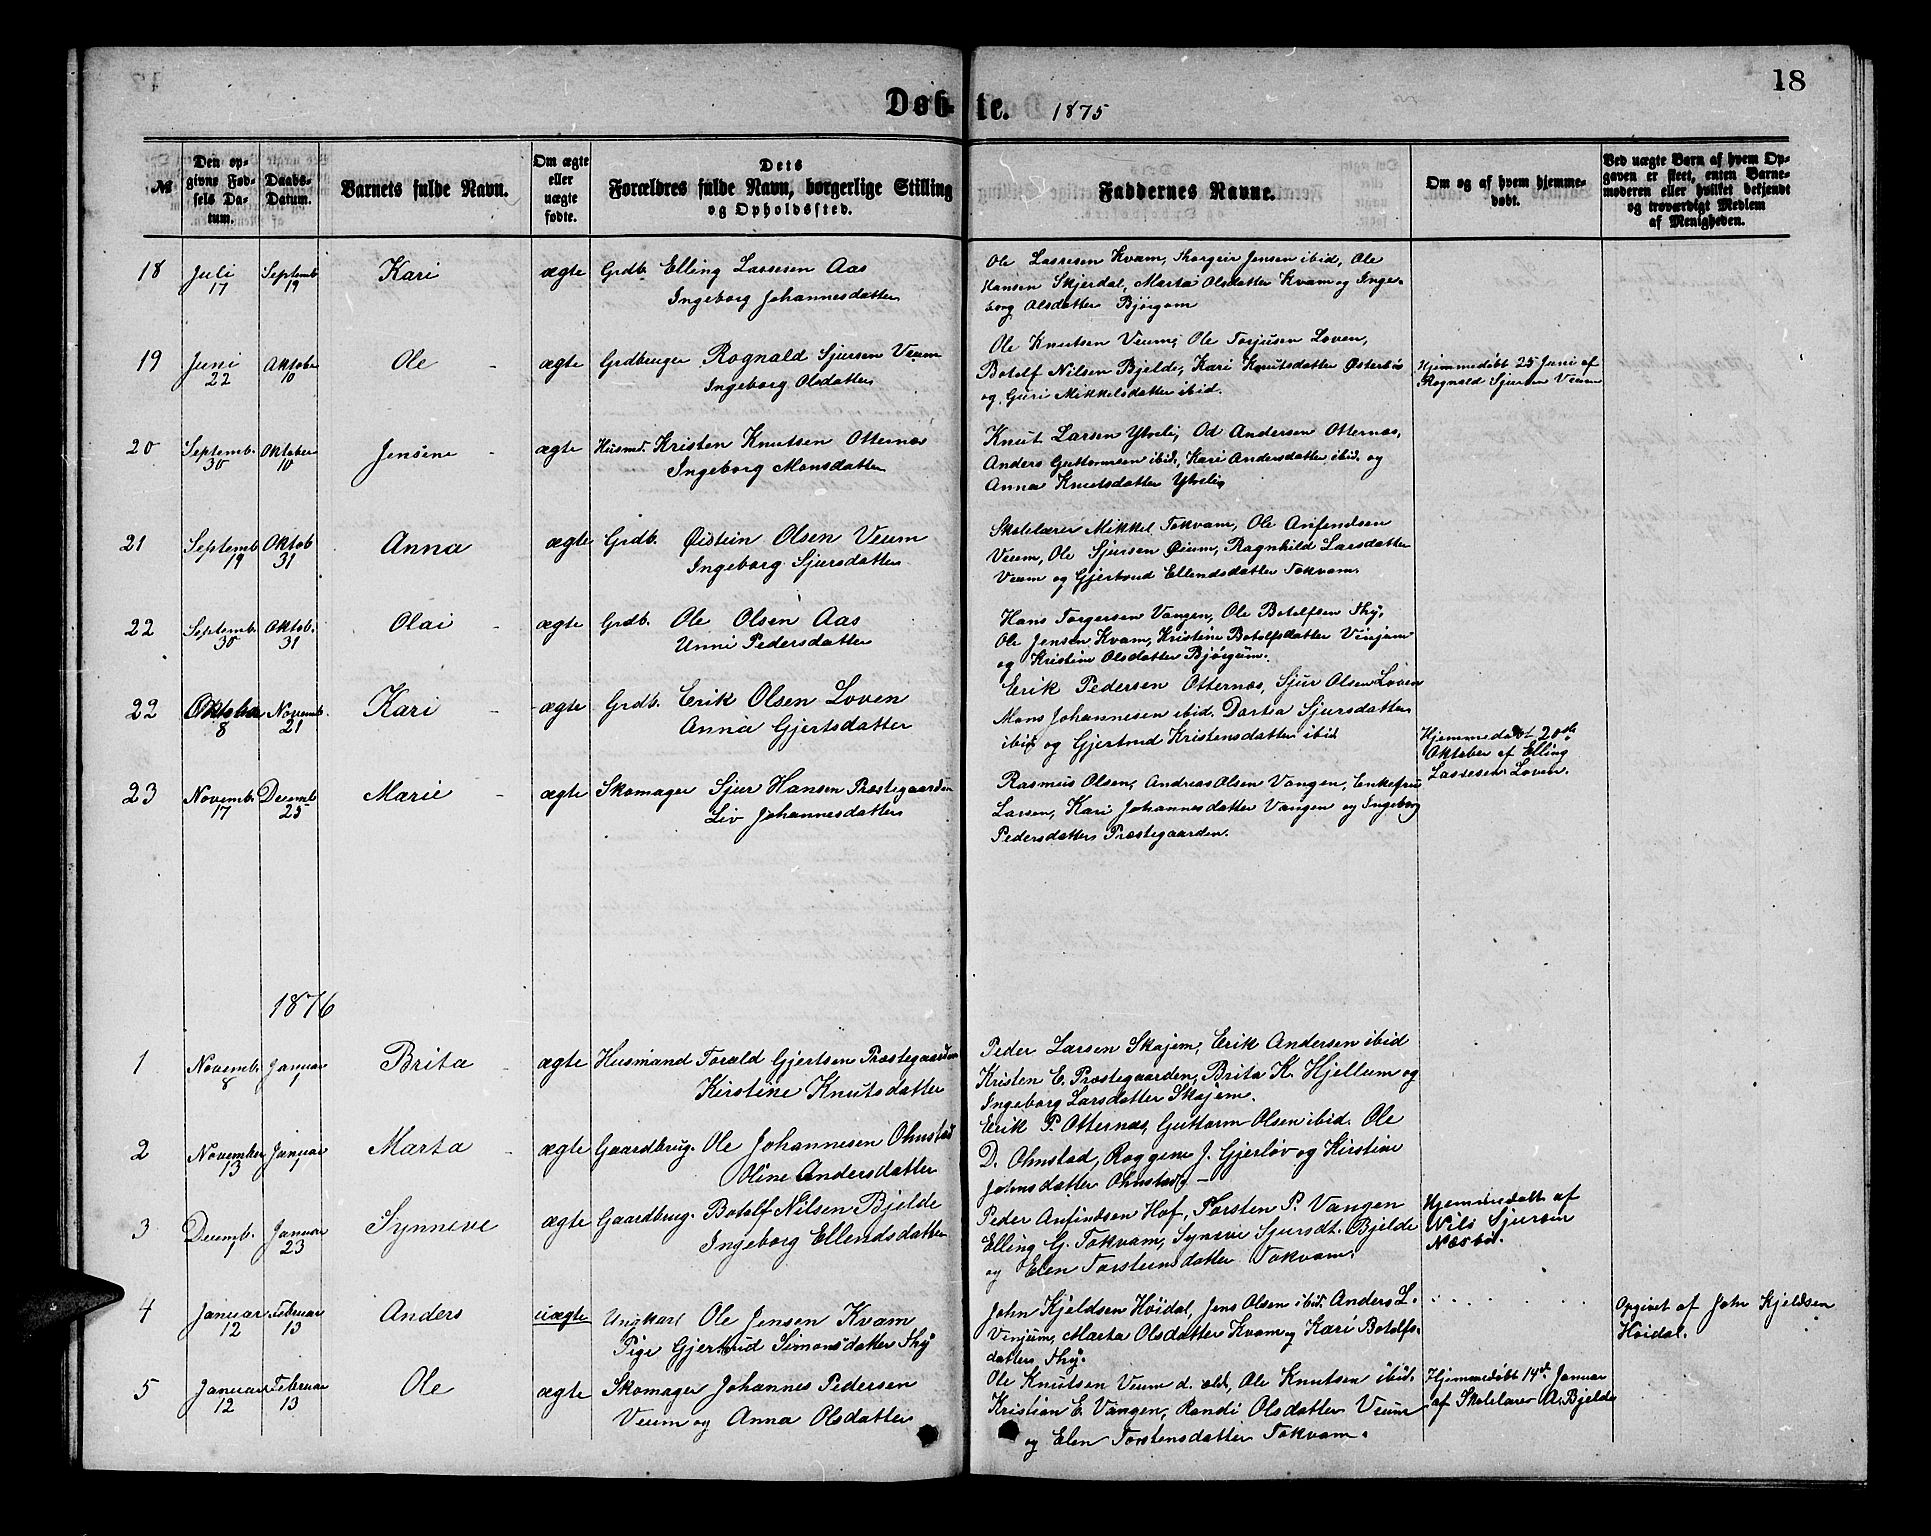 18
Døbte. 1875
№
Den opgivne Fødsels Datum.
Daabs-Datum.
Barnets fulde Navn.
Om ægte eller uægte fødte.
Dets Forældres fulde Navn, borgerlige Stilling og Opholdssted.
Faddernes Navne.
Om og af hvem hjemmedøbt.
Ved uægte Barn af hvem Opgaven er skeet, enten Barnemoderen eller hvilket bekjendt og troværdigt Medlem af Menigheden.
18 Juli 17 Septemb 19 Kari ægte Grdb. Elling Lassesen Aas
Ingeborg Johannesdatter
Ole Lassesen Kvam, Thorgeir Jensen ibid, Ole
Hansen Skjerdal, Marta Olsdatter Kvam og Inge-
borg Olsdatter Bjørgom
19 Juni 22 Aktober 10 Ole ægte Grdbruger Rognald Sjursen Veum
Ingeborg Olsdatter
Ole Knutsen Veum, Ole Torjusen Loven,
Botolf Nilsen Bjelde, Kari Knutsdatter Østerbø
og Guri Mikkelsdatter ibid.
Hjemmedøbt 25 Juni af
Rognald Sjursen Veum
20 Septemb. 30 Oktober 10 Jensine ægte Husmd. Kristen Knutsen Otternæs
Ingeborg Monsdatter
Knut Larsen Ytreli, Od Andersen Otternæs,
Anders Guttormsen ibid, Kari Andersdatter ibid. og
Anna Knutsdatter Ytreli
21 Septemb 19 Oktob 31 Anna ægte Grdb. Øistein Olsen Veum
Ingeborg Sjursdatter
Skolelærer Mikkel Tokvam, Ole Anfendsen
Veum, Ole Sjursen Øium, Ragnhild Larsdatter
Veum og Gjertrud Ellendsdatter Tokvam.
22 Septemb 30 Oktob. 31 Olai ægte Grdb. Ole Olsen Aas
Unni Pedersdatter
Hans Torgersen Vangen, Ole Botolfsen Thy,
Ole Jensen Kvam, Kristine Botolfsdatter Vinjum
og Kristine Olsdatter Bjørgum.
22 Oktober 8 Novemb. 21 Kari ægte Grdb. Erik Olsen Loven
Anna Gjertsdatter
Erik Pedersen Otternæs, Sjur Olsen Loven
Mons Johannesen ibid. Dortea Sjursdatter
ibid og Gjertrud Kristensdatter ibid
Hjemmedøbt 20de
Oktober af Elling
Lassesen Loven.
23 Novemb. 17 Decemb 25 Marie ægte Skomager Sjur Hansen Præstegaarden
Liv Johannesdatter
Rasmus Olsen, Andreas Olsen Vangen, Enkefru
Larsen, Kari Johannesdatter Vangen og Ingeborg
Pedersdatter Præstegaarden.
1876
1 Novemb. 8 Januar 1 Brita ægte Husmand Torald Gjertsen Præstegaarden
Kirstine Knutsdatter
Peder Larsen Skajem, Erik Andersen ibid
Kristen E. Præstegaarden, Brita K. Hjellum og
Ingeborg Larsdatter Skajem.
2 November 13 Januar 1 Marta ægte Gaardbrug. Ole Johannesen Ohnstad
Oline Andersdatter
Erik P. Otternæs, Guttorm Olsen ibid. Ole
D. Ohnstad, Roggene J. Gjerløv og Kirstine
Johnsdatter Ohnstad. –
3 Decemb. 1 Januar 23 Synneve ægte Gaardbrug. Botolf Nilsen Bjelde
Ingeborg Ellendsdatter
Peder Anfindsen Hof, Torsten P. Vangen
Elling G. Tokvam, Synevi Sjursdt. Bjelde
og Elen Torsteinsdatter Tokvam.
Hjemmedøbt af
Nils Sjursen
Næsbø.
4 Januar 12 Februar 13 Anders uægte Ungkarl Ole Jensen Kvam
Pige Gjertrud Simonsdatter Thy
John Kjeldsen Høidal, Jens Olsen ibid. Anders L.
Vinjum, Marta Olsdatter Kvam og Kari Botolfs-
datter Thy.
Opgivet af John Kjeldsen
Høidal.
5 Januar 12 Februar 13 Ole ægte Skomager Johannes Pedersen
Veum og Anna Olsdatter
Ole Knutsen Veum d. æld, Ole Knutsen ibid.
Kristian E. Vangen, Randi Olsdatter Veum
og Elen Torstensdatter Tokvam.
Hjemmedøbt 14de Januar
af Skolelærer A. Bjelde